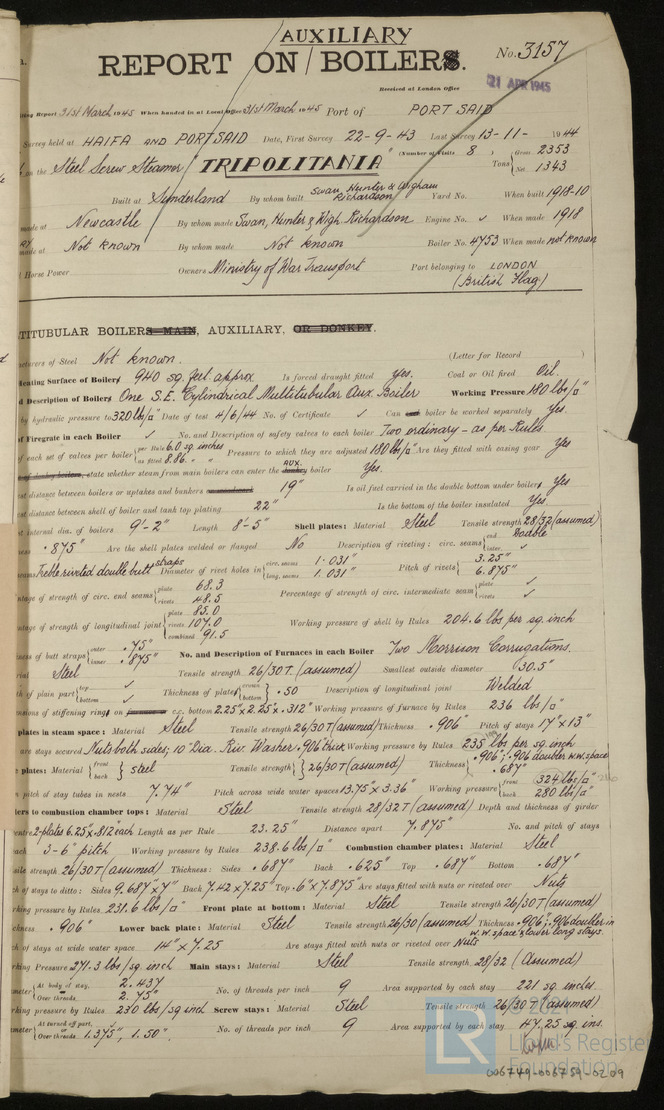 AUXILIARY
REPORT ON BOILERS. No. 3157
Received at London Office
21 APR 1945
Report 31st March 1945 When handed in at Local Office 31st March 1945 Port of PORT SAID
Survey held at HAIFA AND PORT SAID Date, First Survey 22-9-43 Last Survey 13-11-1944
on the Steel Screw Steamer "TRIPOLITANIA" (Number of Visits 8 ) Tons { Gross 2353
Net 1343
Built at Sunderland By whom built Swan, Hunter & Wigham Richardson Yard No. When built 1918-10
made at Newcastle By whom made Swan, Hunter & Wigh. Richardson Engine No. ✓ When made 1918
made at Not known By whom made Not known Boiler No. 4753 When made not known
Horse Power Owners Ministry of War Transport Port belonging to LONDON
(British Flag)
TITUBULAR BOILERS MAIN, AUXILIARY, OR DONKEY.
cturers of Steel Not known. (Letter for Record )
Heating Surface of Boilers 940 sq. feet approx Is forced draught fitted yes. Coal or Oil fired Oil.
d Description of Boilers One S.E. Cylindrical Multitubular Aux. Boiler Working Pressure 180 lbs/□"
by hydraulic pressure to 320 lbs/□" Date of test 4/6/44 No. of Certificate ✓ Can boiler be worked separately yes.
of Firegrate in each Boiler ✓ No. and Description of safety valves to each boiler Two ordinary - as per Rules
of each set of valves per boiler { per Rule 6.0 sq. inches
as fitted 8.86. " " Pressure to which they are adjusted 180 lbs/□" Are they fitted with easing gear Yes
of donkey boilers, state whether steam from main boilers can enter the AUX. donkey boiler Yes.
est distance between boilers or uptakes and bunkers 19" Is oil fuel carried in the double bottom under boilers Yes
st distance between shell of boiler and tank top plating 22" Is the bottom of the boiler insulated Yes
st internal dia. of boilers 9'-2" Length 8'-5" Shell plates: Material Steel Tensile strength 28/32 (assumed)
ness .875" Are the shell plates welded or flanged No Description of riveting: circ. seams { end Double
inter. ✓
seams Treble riveted double butt straps Diameter of rivet holes in { circ. seams 1.031"
long. seams 1.031" Pitch of rivets { 3.25"
6.875"
ntage of strength of circ. end seams { plate 68.3
rivets 48.5 Percentage of strength of circ. intermediate seam { plate ✓
rivets ✓
ntage of strength of longitudinal joint { plate 85.0
rivets 107.0
combined 91.5 Working pressure of shell by Rules 204.6 lbs per sq. inch
ness of butt straps { outer .75"
inner .875" No. and Description of Furnaces in each Boiler Two Morrison Corrugations.
rial Steel Tensile strength 26/30 T. (assumed) Smallest outside diameter 30.5"
th of plain part { top ✓
bottom ✓ Thickness of plates { crown
bottom } .50 Description of longitudinal joint Welded
nsions of stiffening rings on c.c. bottom 2.25"x2.25"x.312" Working pressure of furnace by Rules 236 lbs/□"
plates in steam space: Material Steel Tensile strength 26/30 T (assumed) Thickness .906" Pitch of stays 17" x 13"
are stays secured Nuts both sides; 10" Dia. Riv. Washer .906" thick Working pressure by Rules 235 lbs per sq. inch
plates: Material { front
back } steel Tensile strength { } 26/30 T (assumed) Thickness { .906"; .906 doubler W.W. space
.687"
n pitch of stay tubes in nests 7.74" Pitch across wide water spaces 13.75" x 3.36" Working pressure { front 324 lbs/□"
back 280 lbs/□"
ders to combustion chamber tops: Material Steel Tensile strength 28/32 T (assumed) Depth and thickness of girder
entre 2-plates 6.25" x .812 each Length as per Rule 23.25" Distance apart 7.875" No. and pitch of stays
ach 3-6" pitch Working pressure by Rules 238.6 lbs/□" Combustion chamber plates: Material Steel
sile strength 26/30 T (assumed) Thickness: Sides .687" Back .625" Top .687" Bottom .687"
ch of stays to ditto: Sides 9.687" x 7" Back 7.42 x 7.25" Top 6" x 7.875" Are stays fitted with nuts or riveted over Nuts
king pressure by Rules 231.6 lbs/□" Front plate at bottom: Material Steel Tensile strength 26/30 T (assumed)
ckness .906" Lower back plate: Material Steel Tensile strength 26/30 (assumed) Thickness .906"; .906 doubler in
W.W space & lower long stays.
ch of stays at wide water space 14" x 7.25 Are stays fitted with nuts or riveted over Nuts
king Pressure 271.3 lbs/sq. inch Main stays: Material Steel Tensile strength 28/32 (Assumed)
meter { At body of stay, 2.437
Over threads 2.75" No. of threads per inch 9 Area supported by each stay 221 sq. incles.
king pressure by Rules 230 lbs/sq inch Screw stays: Material Steel Tensile strength 26/30 T (assumed)
meter { At turned off part,
or
Over threads 1.375", 1.50" No. of threads per inch 9 Area supported by each stay 47.25 sq. ins.
LR © 2021
Lloyd's Register
Foundation
006749-006759-0209